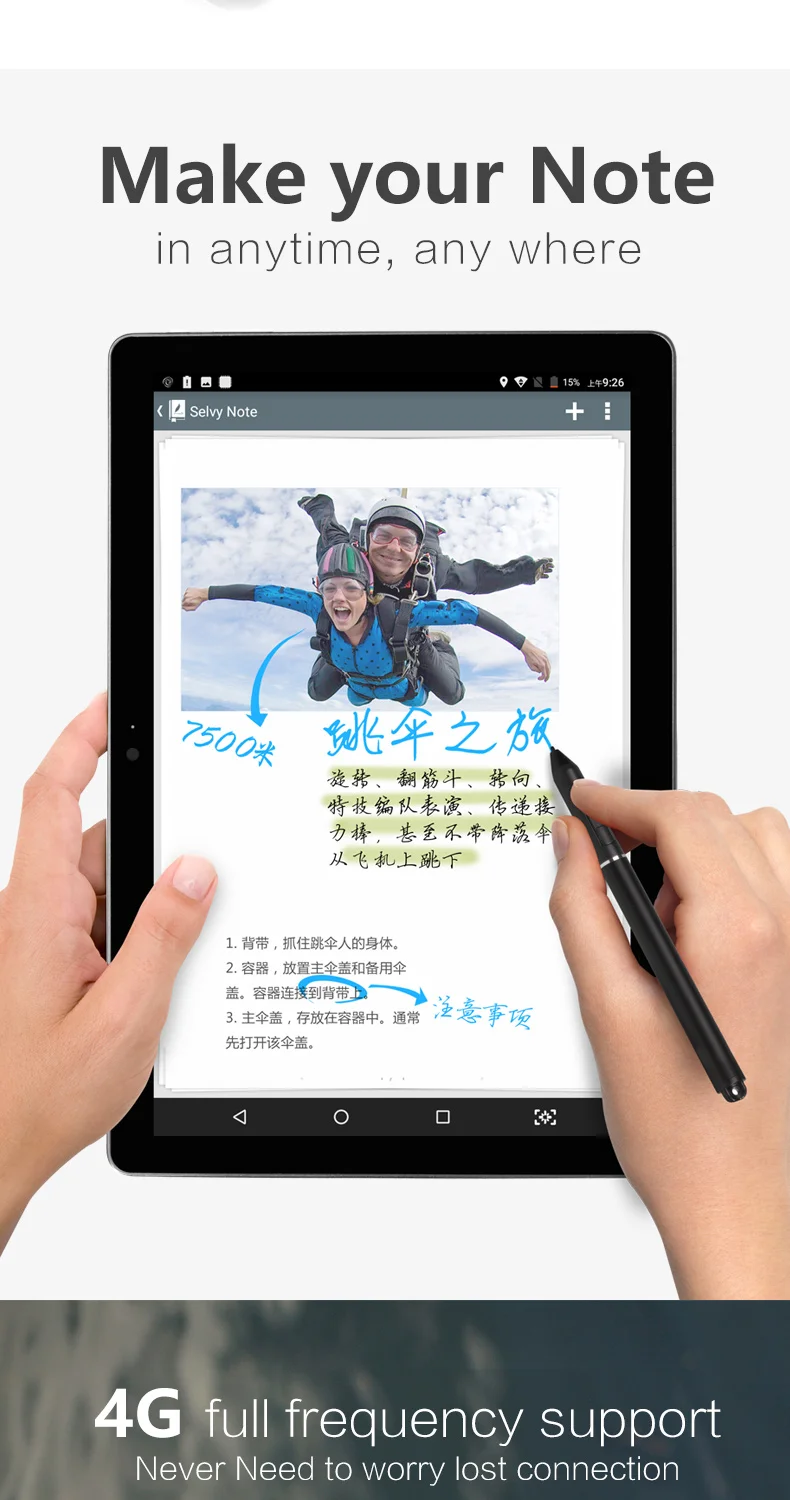 Make your Note
in anytime, any where
15% 上午9:26
Selvy Note
7500米
跳伞之旅
旋转、翻筋斗、转向、
特技编队表演、传递接
力棒，甚至不带降落伞
从飞机上跳下
1. 背带，抓住跳伞人的身体。
2. 容器，放置主伞盖和备用伞
盖。容器连接到背带上。
注意事项
3. 主伞盖，存放在容器中。通常
先打开该伞盖。
4G full frequency support
Never Need to worry lost connection